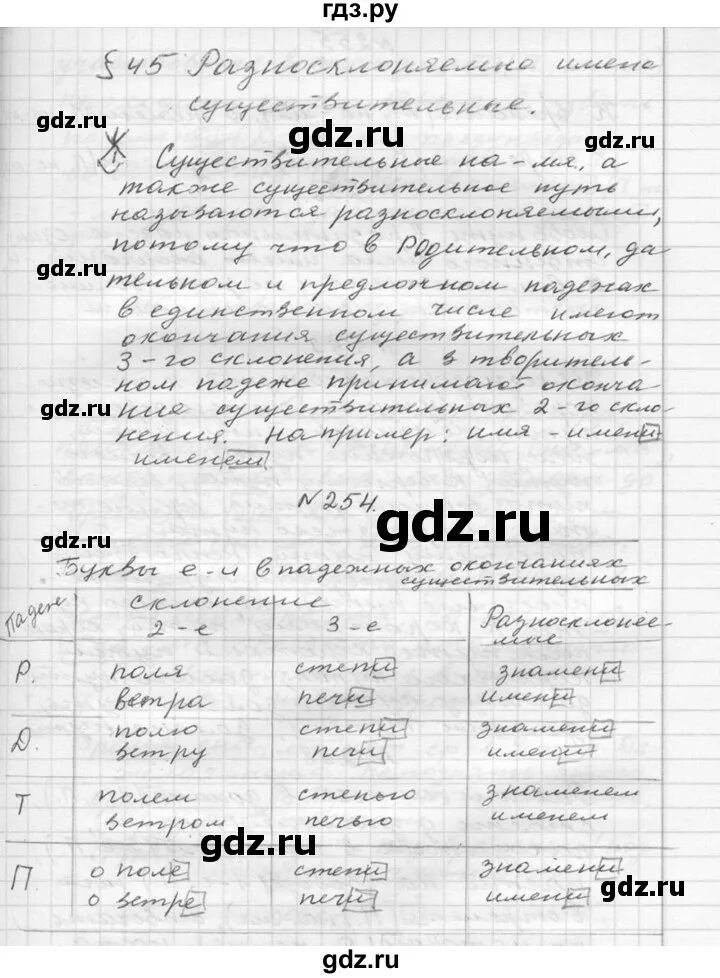 гдз.ру
§ 45 Разносклоняемые имена
существительные.
Существительные на -мя, а
также существительное путь
называются разносклоняемыми,
потому что в Родительном, да
тельном и предложном падежах
в единственном числе имеют
окончания существительных
3-го склонения, а в творитель-
ном падеже принимают оконча-
ние существительных 2-го скло-
нения. Например: имя - имени
именем
№254.
Буквы е-и в падежных окончаниях
существительных
Падеж склонение Разносклоняе-
2-е 3-е мые
Р. поля степи знамени
ветра печи имени
Д. полю степи знамени
ветру печи имени
Т полем степью знаменем
ветром печью именем
П. о поле степи знамени
о ветре печи имени
gdz.ru
gdz.ru
gdz.ru
gdz.ru
gdz.ru
gdz.ru
gdz.ru
gdz.ru
gdz.ru
gdz.ru
gdz.ru
gdz.ru
gdz.ru
gdz.ru